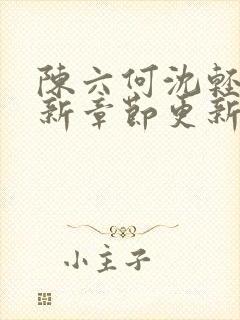 陳六何沈輕
新章節更新
小主子